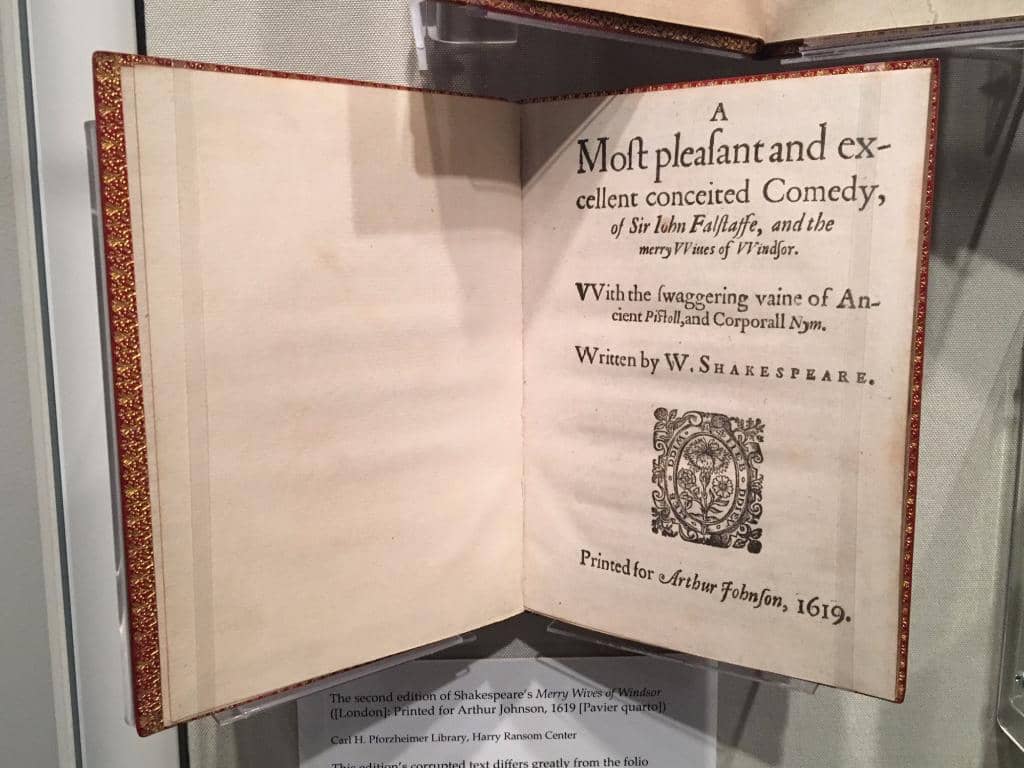 A
Moſt pleaſant and ex-
cellent conceited Comedy,
of Sir Iohn Falſtaffe, and the
merry VViues of VVindſor.
VVith the ſwaggering vaine of An-
cient Piſtoll, and Corporall Nym.
Written by W. SHAKESPEARE.
Printed for Arthur Johnſon, 1619.
The second edition of Shakespeare's Merry Wives of Windsor
([London]: Printed for Arthur Johnson, 1619 [Pavier quarto])
Carl H. Pforzheimer Library, Harry Ransom Center
This edition's corrupted text differs greatly from the folio